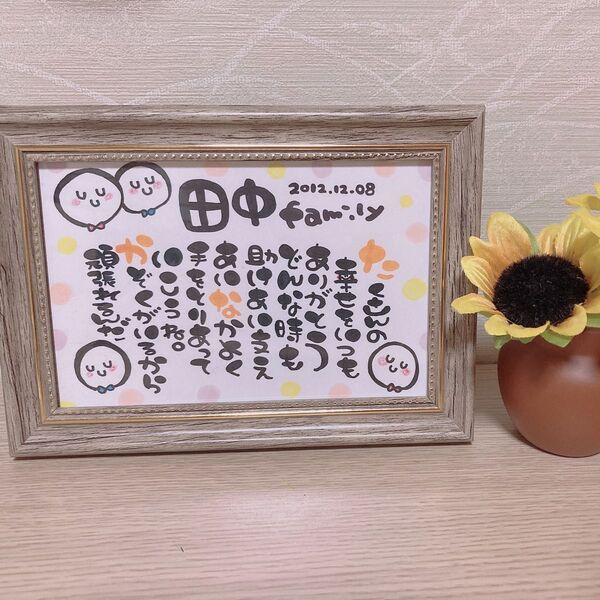 田中
2012.12.08
family
たくさんの
幸せをいつも
ありがとう
どんな時も
助けあい支え
あいなかよく
手をとりあって
いこうね。
かぞくがいるから
頑張れるんだ